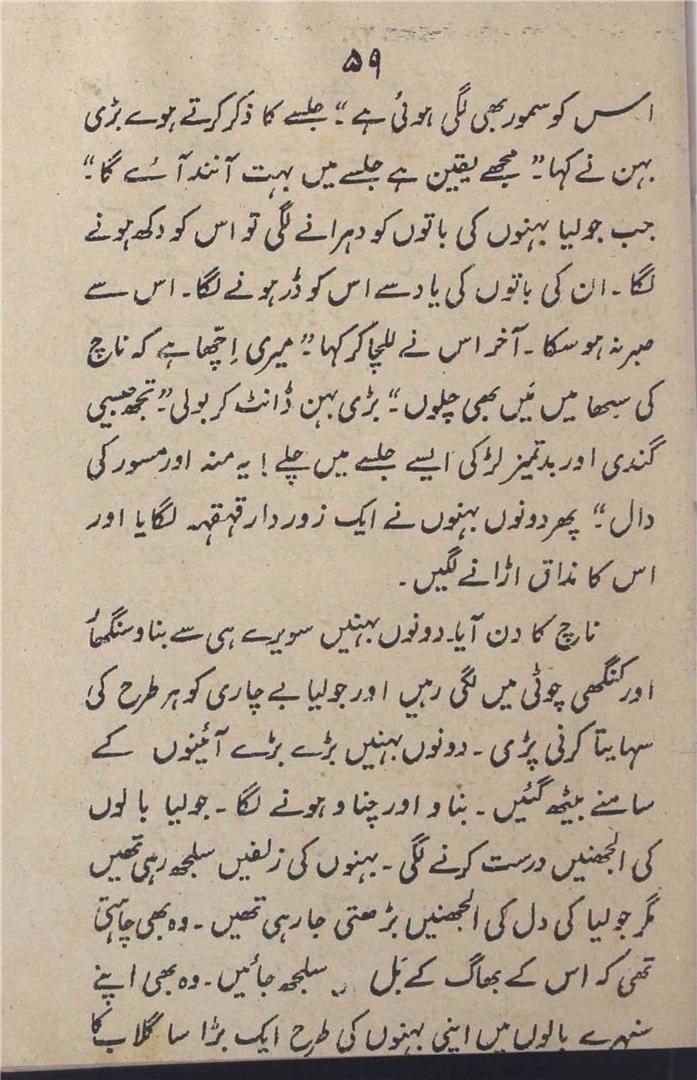 ۵۹
اس کو سمور بھی لگی ہوئی ہے“ جلسے کا ذکر کرتے ہوے بڑی
بہن نے کہا۔” مجھے یقین ہے جلسے میں بہت آنند آئے گا۔“
جب جولیا بہنوں کی باتوں کو دہرانے لگی تو اس کو دکھ ہونے
لگا۔ ان کی باتوں کی یاد سے اس کو ڈر ہونے لگا۔ اس سے
صبر نہ ہو سکا۔ آخر اس نے للچا کر کہا۔” میری اِچھا ہے کہ ناچ
کی سبھا میں مَیں بھی چلوں“ بڑی بہن ڈانٹ کر بولی۔” تجھ جیسی
گندی اور بدتمیز لڑکی ایسے جلسے میں چلے! یہ منہ اور مسور کی
دال۔“ پھر دونوں بہنوں نے ایک زور دار قہقہہ لگایا اور
اس کا مذاق اڑانے لگیں۔
ناچ کا دن آیا۔ دونوں بہنیں سویرے ہی سے بناو سنگھار
اور کنگھی چوٹی میں لگی رہیں اور جولیا بے چاری کو ہر طرح کی
سہایتا کرنی پڑی۔ دونوں بہنیں بڑے بڑے آئینوں کے
سامنے بیٹھ گئیں۔ بناو اور چناو ہونے لگا۔ جولیا بالوں
کی الجھنیں درست کرنے لگی۔ بہنوں کی زلفیں سلجھ رہی تھیں
مگر جولیا کی دل کی الجھنیں بڑھتی جا رہی تھیں۔ وہ بھی چاہتی
تھی کہ اس کے بھاگ کے بَل سلجھ جائیں۔ وہ بھی اپنے
سنہرے بالوں میں اپنی بہنوں کی طرح ایک بڑا سا گلاب کا